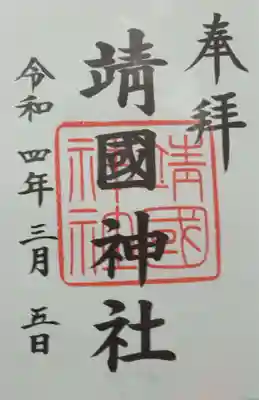 奉拝
靖國神社
靖國神社
令和四年三月五日